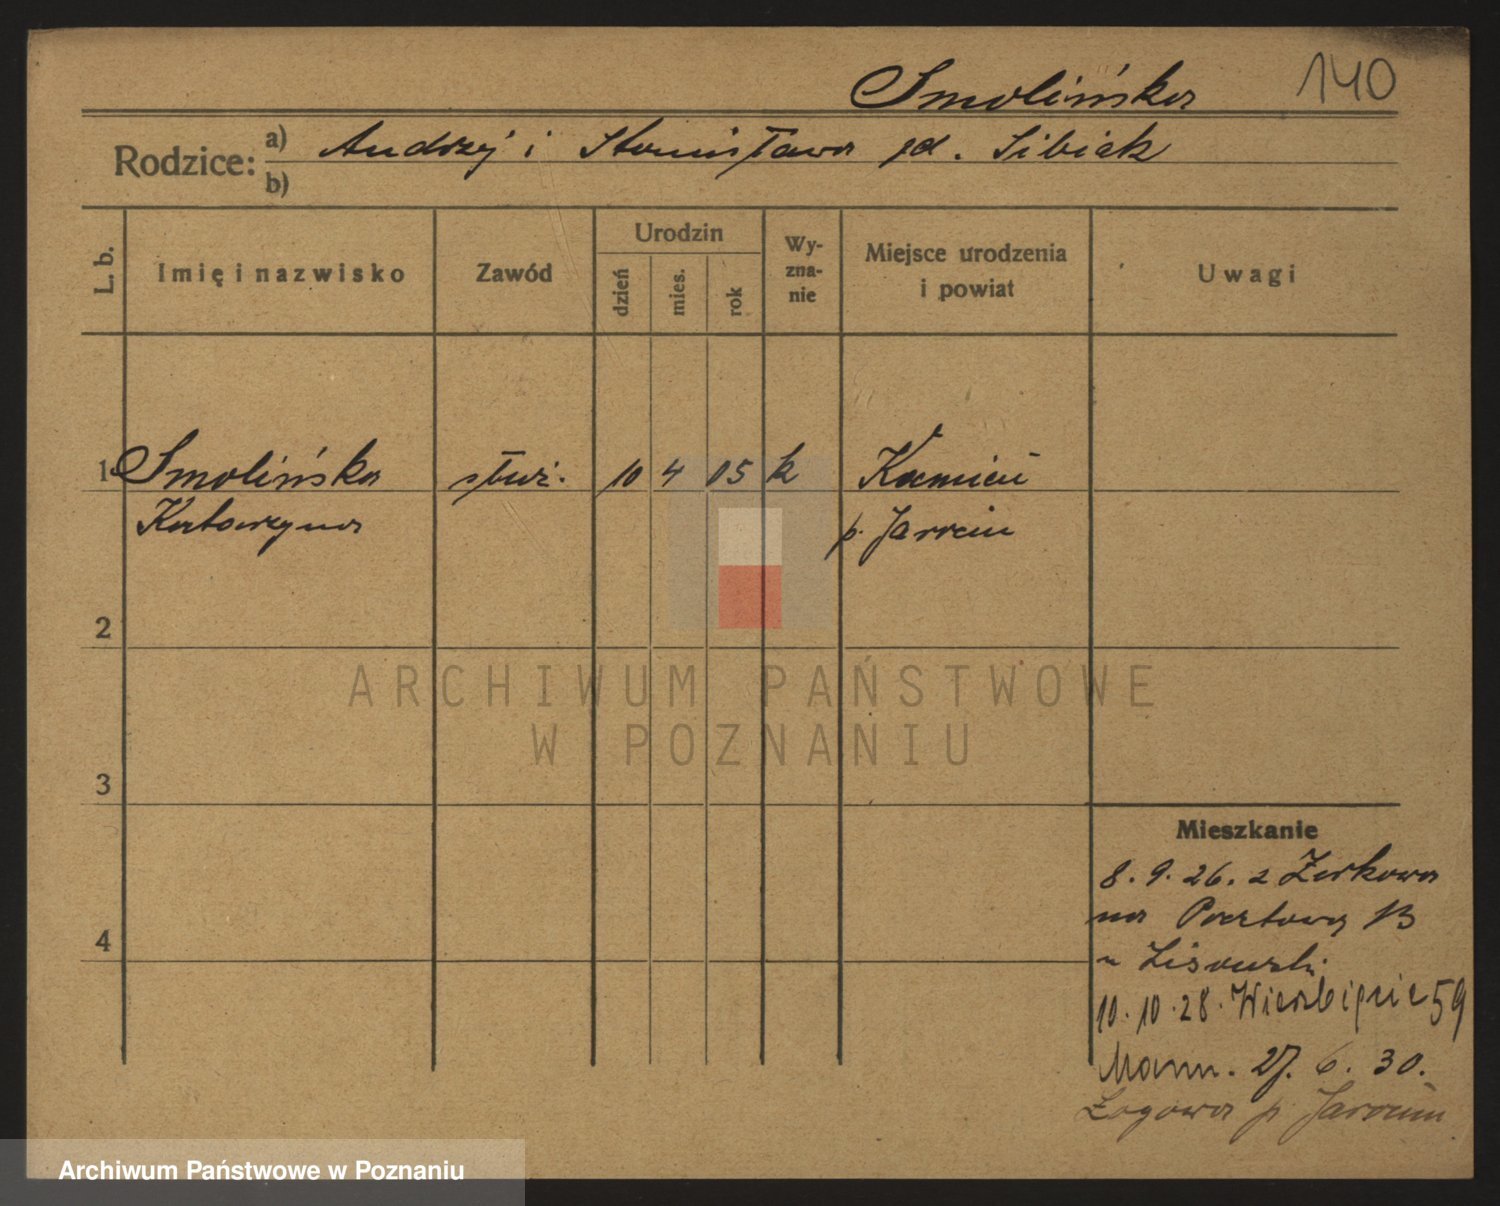 Smolińska 140
Rodzice: a) Andrzej i Stanisława zd. Sibiak
b)
L. b. Imię i nazwisko Zawód Urodzin dzień mies. rok Wy-zna-nie Miejsce urodzenia i powiat Uwagi
1 Smolińska służ. 10 4 05 k Kamień
Katarzyna p. Jarocin
2
3
4
Mieszkanie
8. 9. 26. z Żerkowa
na Pocztową 13
u Lisowski
10. 10. 28. Wierzbięcie 59
Mann. 27. 6. 30.
Łagowa p. Jarocin
ARCHIWUM PAŃSTWOWE
W POZNANIU
Archiwum Państwowe w Poznaniu